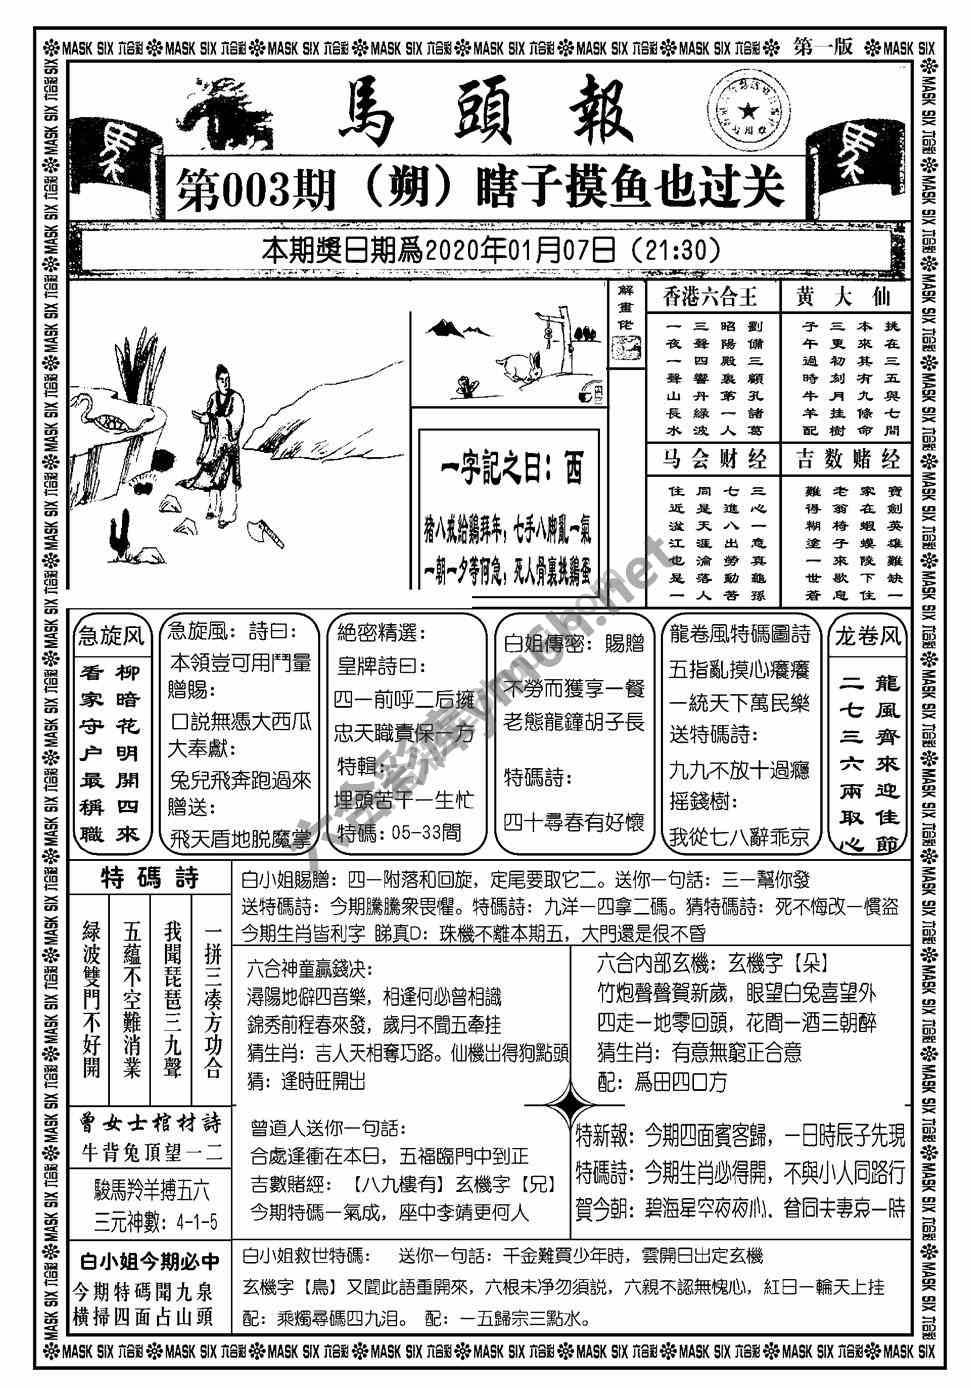 MASK SIX 六合彩 MASK SIX 六合彩 MASK SIX 六合彩 MASK SIX 六合彩 MASK SIX 六合彩 MASK SIX 六合彩 MASK SIX 六合彩 第一版 MASK SIX
馬頭報
第003期（朔）瞎子摸鱼也过关
本期獎日期爲2020年01月07日（21:30）
解畫佬
一字記之曰：西
猪八戒給鷄拜年，七手八脚亂一氣
一朝一夕等何急，死人骨裏挑鷄蛋
香港六合王
劉備三顧孔諸葛
昭陽殿裏第一人
三聲四響丹綠波
一夜一聲山長水
黄大仙
挑在三五與七間
本來其有九條命
三更初刻月挂樹
子午過時牛羊配
马会财经
三心一意真龜孫
七進八出勞動苦
同是天涯淪落人
住近湓江也是一
吉数赌经
寶劍英雄難缺一
家在蝦蟆陵下住
老翁椅子來歇息
難得糊塗一世着
急旋风
柳暗花明開四來
看家守户最稱職
急旋風：詩曰：
本領豈可用鬥量
贈賜：
口説無憑大西瓜
大奉獻：
兔兒飛奔跑過來
贈送：
飛天盾地脱魔掌
絶密精選：
皇牌詩曰：
四一前呼二后擁
忠天職責保一方
特輯：
埋頭苦干一生忙
特碼：05-33間
白姐傳密：賜贈
不勞而獲享一餐
老態龍鐘胡子長
特碼詩：
四十尋春有好懷
龍卷風特碼圖詩
五指亂摸心癢癢
一統天下萬民樂
送特碼詩：
九九不放十過癮
摇錢樹：
我從七八辭乖京
龙卷风
龍風齊來迎佳節
二七三六兩取心
特碼詩
一拼三凑方功合
我聞琵琶三九聲
五蘊不空難消業
緑波雙門不好開
白小姐賜贈：四一附落和回旋，定尾要取它二。送你一句話：三一幫你發
送特碼詩：今期騰騰衆畏懼。特碼詩：九洋一四拿二碼。猜特碼詩：死不悔改一慣盗
今期生肖皆利字 睇真D：珠機不離本期五，大門還是很不昏
六合神童贏錢决：
潯陽地僻四音樂，相逢何必曾相識
錦秀前程春來發，歲月不聞五牽挂
猜生肖：吉人天相奪巧路。仙機出得狗點頭
猜：逢時旺開出
六合内部玄機：玄機字【朵】
竹炮聲聲賀新歲，眼望白兔喜望外
四走一地零回頭，花間一酒三朝醉
猜生肖：有意無窮正合意
配：爲田四口方
曾女士棺材詩
牛背兔頂望一二
駿馬羚羊搏五六
三元神數：4-1-5
白小姐今期必中
今期特碼聞九泉
横掃四面占山頭
曾道人送你一句話：
合處逢衝在本日，五福臨門中到正
吉數賭經：【八九樓有】玄機字【兄】
今期特碼一氣成，座中李靖更何人
特新報：今期四面賓客歸，一日時辰子先現
特碼詩：今期生肖必得開，不與小人同路行
賀今朝：碧海星空夜夜心，曾同夫妻哀一時
白小姐救世特碼： 送你一句話：千金難買少年時，雲開日出定玄機
玄機字【鳥】又聞此語重開來，六根未净勿須説，六親不認無愧心，紅日一輪天上挂
配：乘燭尋碼四九泪。 配：一五歸宗三點水。
MASK SIX 六合彩 MASK SIX 六合彩 MASK SIX 六合彩 MASK SIX 六合彩 MASK SIX 六合彩 MASK SIX 六合彩 MASK SIX 六合彩 MASK SIX 六合彩 MASK SIX